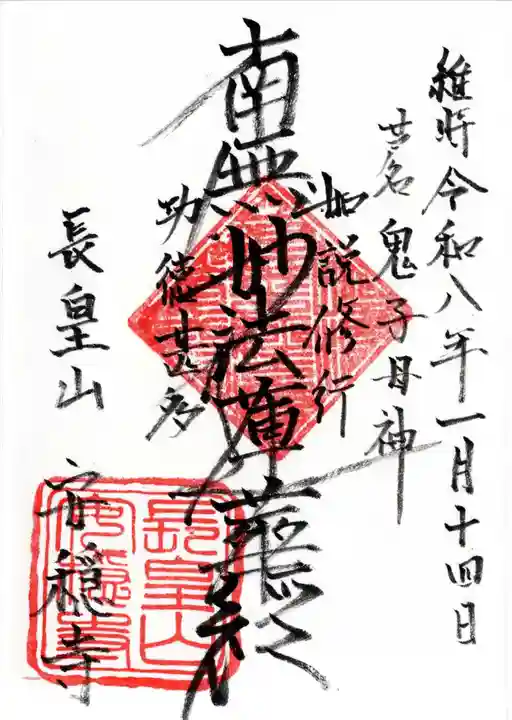 維時令和八年一月十四日
名鬼子母神
如説修行
南無妙法蓮華経
功徳甚多
長皇山 安穏寺
長皇山
安穏寺